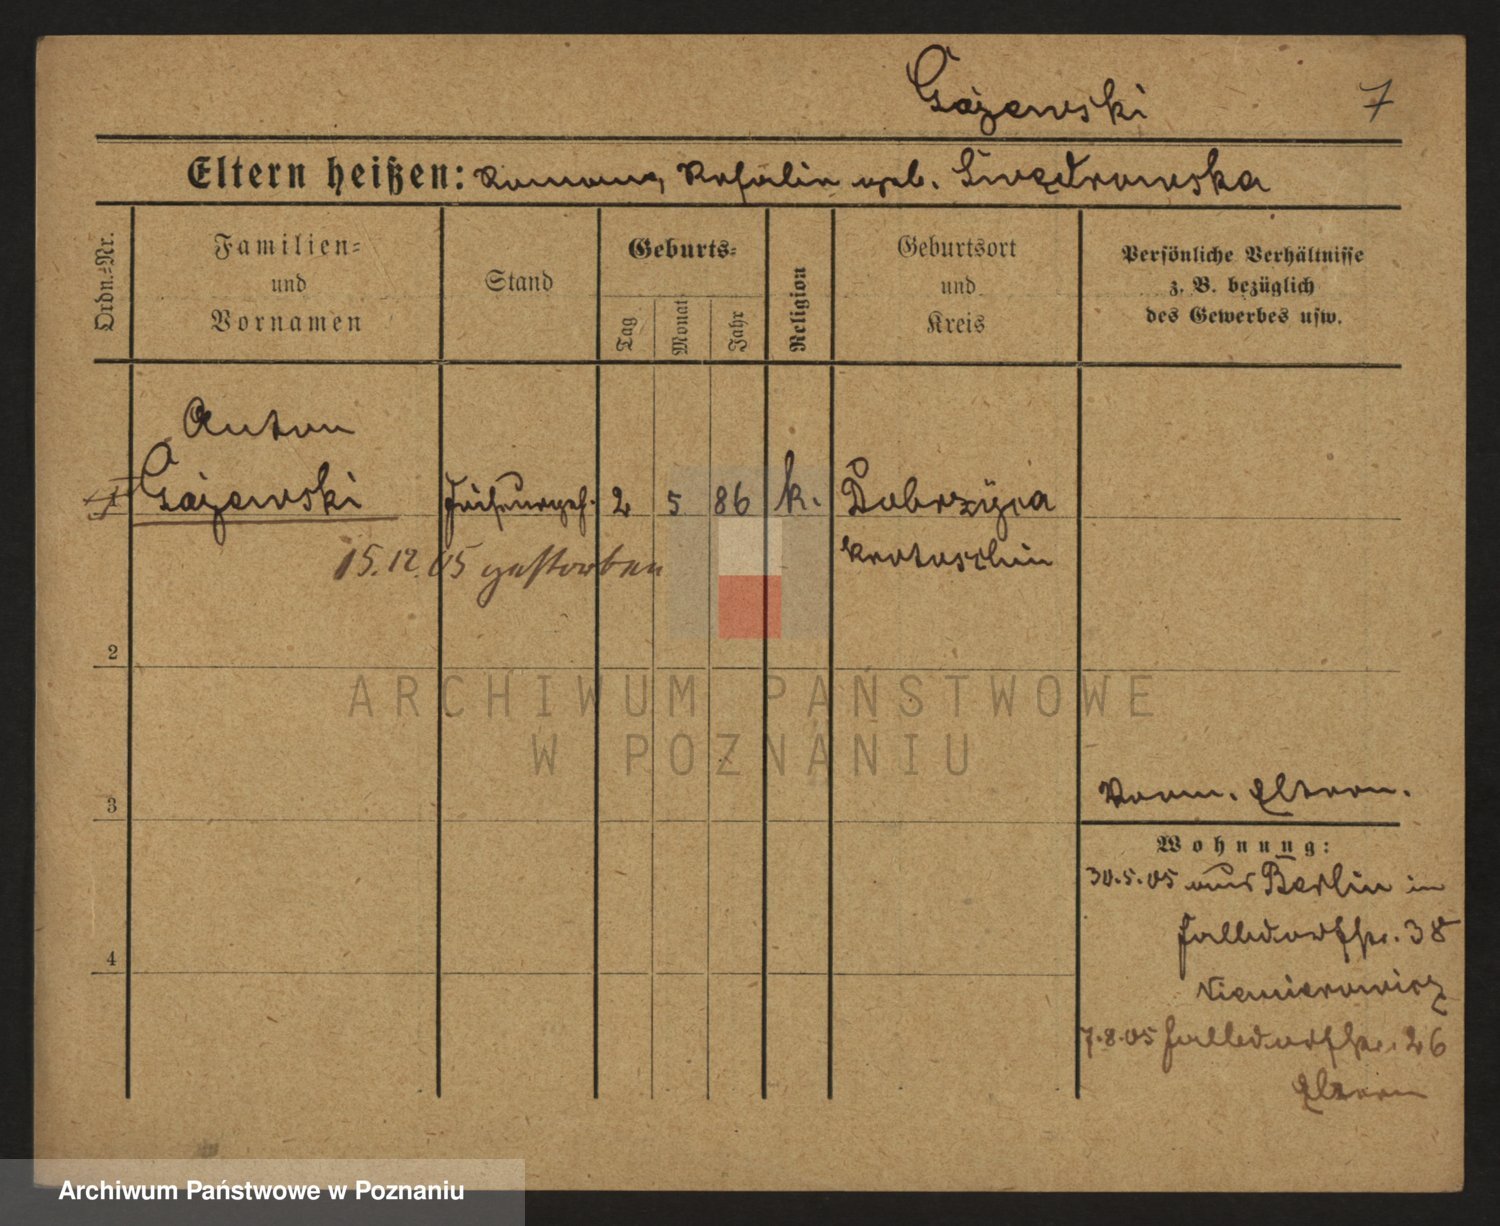 Gażewski 7
Eltern heißen: Roman, Rosalie geb. Swędrowska
Ordn.=Nr.
Familien=
und
Vornamen
Stand
Geburts=
Tag
Monat
Jahr
Religion
Geburtsort
und
Kreis
Persönliche Verhältnisse
z. B. bezüglich
des Gewerbes usw.
Anton
1 Gażewski Friseurgeh. 2 5 86 k. Dobrzyca
15.12.05 gestorben Krotoschin
2
ARCHIWUM PAŃSTWOWE
W POZNANIU
Eltern.
3
Wohnung:
30.5.05 aus Berlin in
38
4
Niemierowicz
7.8.05 26
Eltern
Archiwum Państwowe w Poznaniu